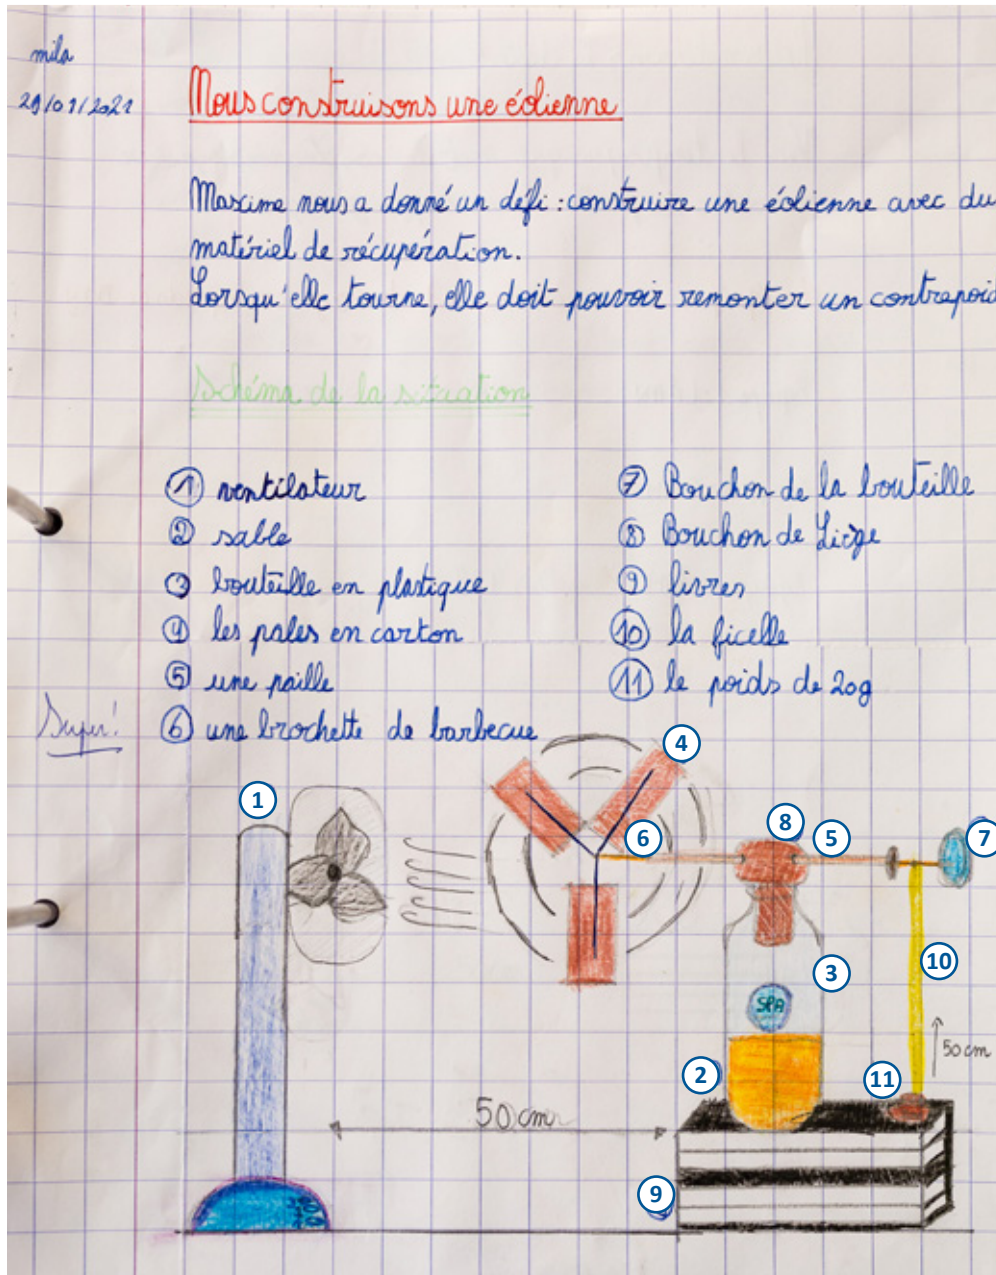 mila
29/01/2021
Nous construisons une éolienne
Maxime nous a donné un défi : construire une éolienne avec du
matériel de récupération.
Lorsqu'elle tourne, elle doit pouvoir remonter un contrepoid
Schéma de la situation
① ventilateur
② sable
③ bouteille en plastique
④ les pales en carton
⑤ une paille
⑥ une brochette de barbecue
⑦ Bouchon de la bouteille
⑧ Bouchon de Liège
⑨ livres
⑩ la ficelle
⑪ le poids de 20g
Super!
4
1
6
8
5
7
3
10
SPA
2
11
50 cm
50 cm
9